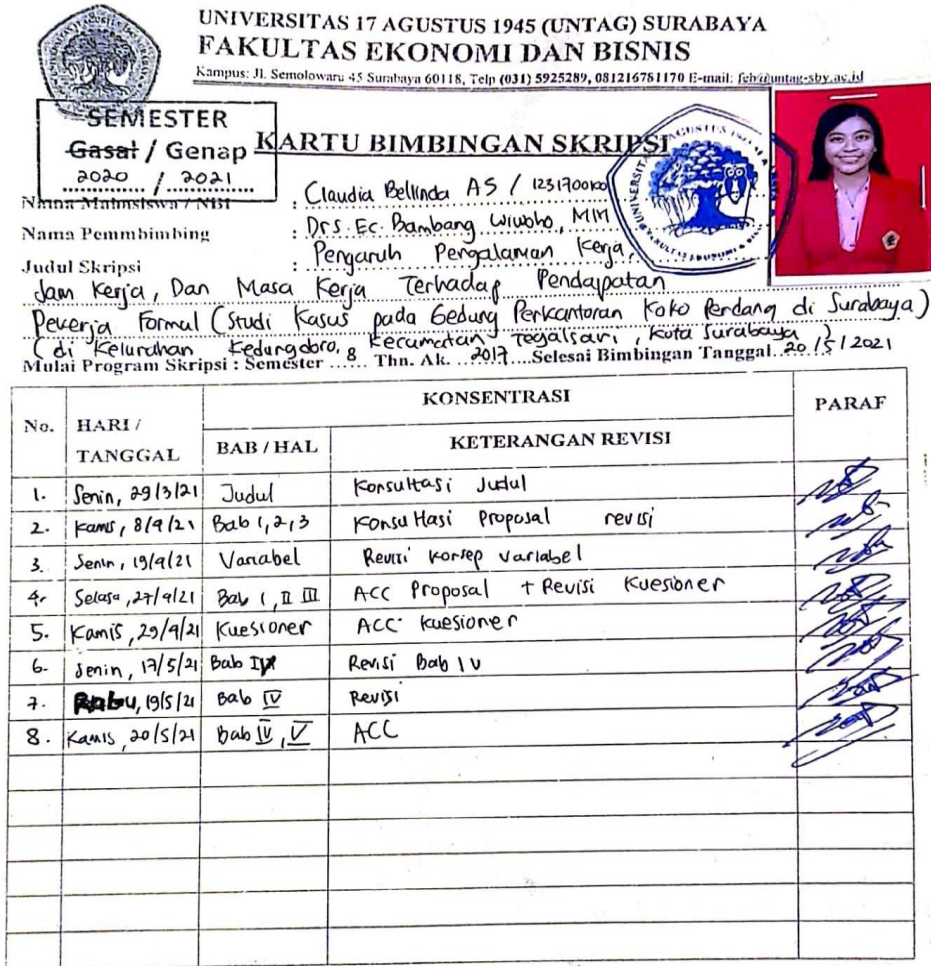 UNIVERSITAS 17 AGUSTUS 1945 (UNTAG) SURABAYA
FAKULTAS EKONOMI DAN BISNIS
Kampus: Jl. Semolowaru 45 Surabaya 60118, Telp (031) 5925289, 081216781170 E-mail: feb@untag-sby.ac.id
SEMESTER
Gasal / Genap
2020 / 2021
KARTU BIMBINGAN SKRIPSI
Nama Mahasiswa / NBI : Claudia Bellinda AS /
Nama Pemmbimbing : Drs. Ec. Bambang Wiwoho, MM
Judul Skripsi : Pengaruh Pengalaman Kerja,
Jam Kerja, Dan Masa Kerja Terhadap Pendapatan
Pekerja Formal (Studi Kasus pada Gedung Perkantoran Koko Perdana di Surabaya)
(di Kelurahan Kedungdoro, Kecamatan Tegalsari, Kota Surabaya)
Mulai Program Skripsi : Semester 8 Thn. Ak. 2017 Selesai Bimbingan Tanggal 20/5/2021
No. HARI / TANGGAL KONSENTRASI PARAF
BAB / HAL KETERANGAN REVISI
1. Senin, 29/3/21 Judul Konsultasi Judul
2. Kamis, 8/4/21 Bab 1,2,3 Konsultasi Proposal revisi
3. Senin, 19/4/21 Variabel Revisi Konsep variabel
4. Selasa, 27/4/21 Bab I, II III ACC Proposal + Revisi Kuesioner
5. Kamis, 29/4/21 Kuesioner ACC kuesioner
6. Senin, 17/5/21 Bab IV Revisi Bab IV
7. Rabu, 19/5/21 Bab IV Revisi
8. Kamis, 20/5/21 Bab IV, V ACC